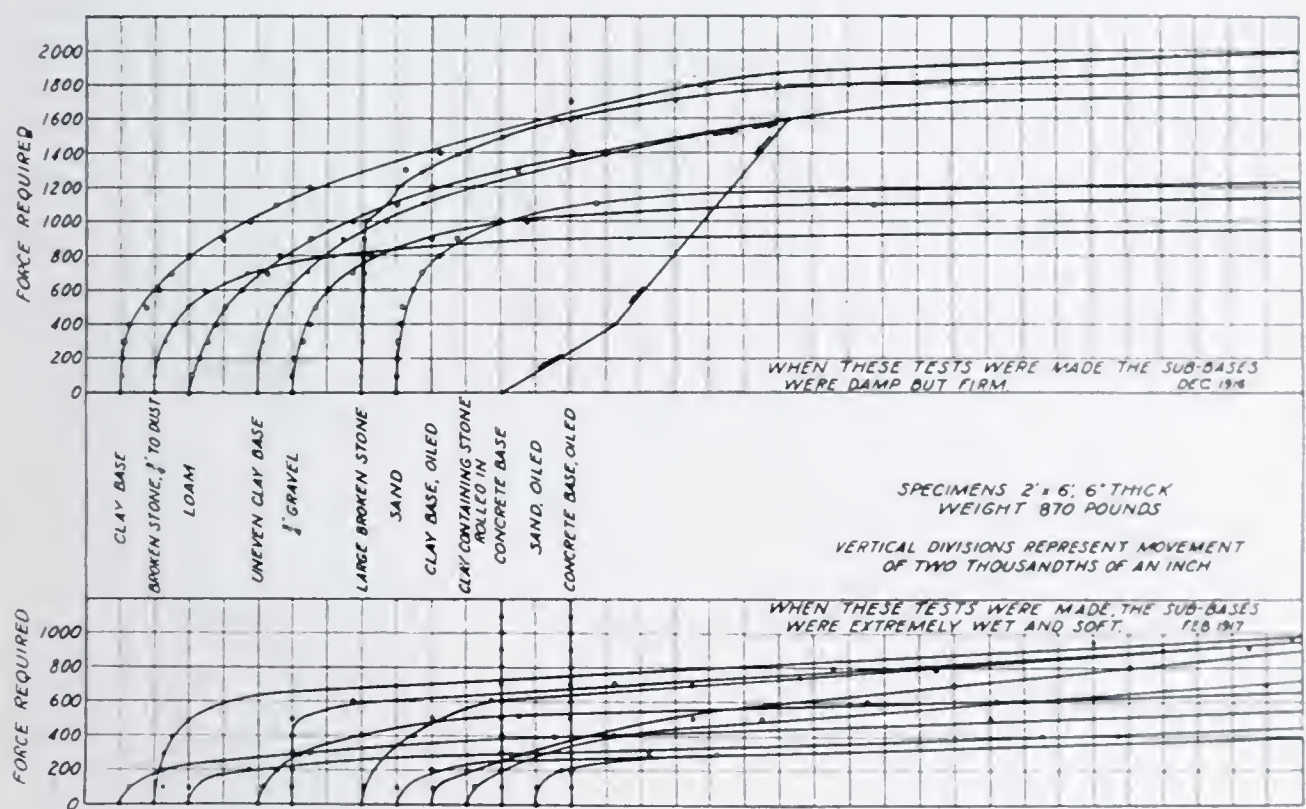 FORCE REQUIRED
2000
1800
1600
1400
1200
1000
800
600
400
200
0
WHEN THESE TESTS WERE MADE THE SUB-BASES
WERE DAMP BUT FIRM. DEC 1916
CLAY BASE
BROKEN STONE, TO DUST
LOAM
UNEVEN CLAY BASE
GRAVEL
LARGE BROKEN STONE
SAND
CLAY BASE, OILED
CLAY CONTAINING STONE
ROLLED IN
CONCRETE BASE
SAND, OILED
CONCRETE BASE, OILED
SPECIMENS 2' x 6', 6" THICK
WEIGHT 870 POUNDS
VERTICAL DIVISIONS REPRESENT MOVEMENT
OF TWO THOUSANDTHS OF AN INCH
WHEN THESE TESTS WERE MADE, THE SUB-BASES
WERE EXTREMELY WET AND SOFT. FEB 1917
FORCE REQUIRED
1000
800
600
400
200
0